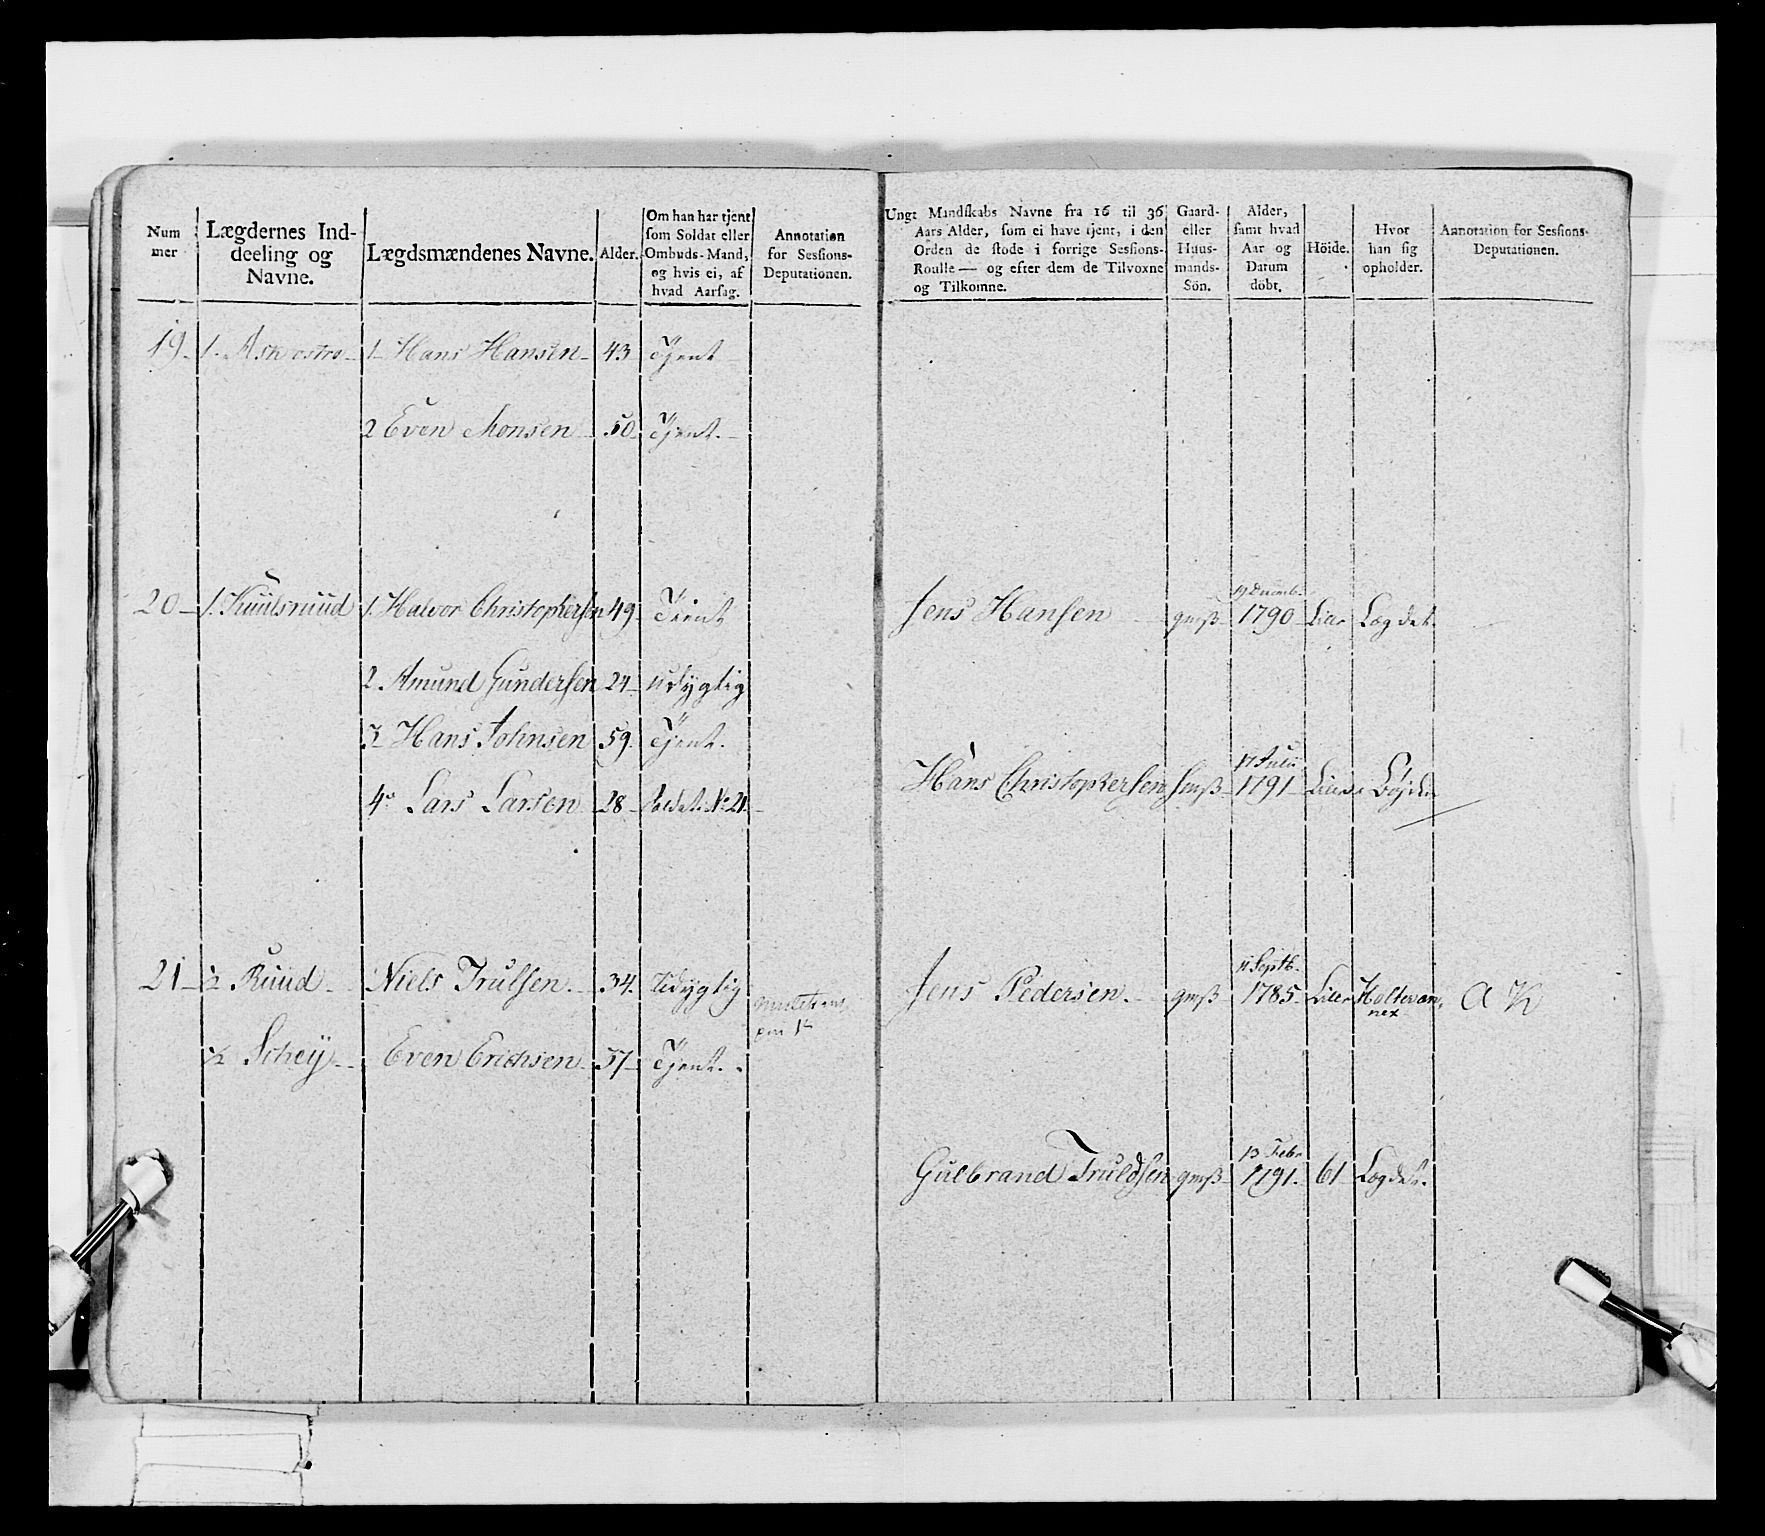 Num
mer
Lægdernes Ind-
deeling og
Navne.
Lægdsmændenes Navne.
Alder.
Om han har tjent
som Soldat eller
Ombuds-Mand,
og hvis ei, af
hvad Aarsag.
Annotation
for Sessions-
Deputationen.
Ungt Mandskabs Navne fra 16 til 36
Aars Alder, som ei have tjent, i den
Orden de stode i forrige Sessions-
Roulle — og efter dem de Tilvoxne
og Tilkomne.
Gaard-
eller
Huus-
mands-
Sön.
Alder,
samt hvad
Aar og
Datum
döbt.
Höide.
Hvor
han sig
opholder.
Annotation for Sessions-
Deputationen.
19. 1. 1 Hans Hansen 43 Tjent
2 Even Monsen 50 Tjent.
20 1. Kuulsruud 1. Halvor Christophersen 49 Tient
Jens Hansen gmß 19 Decemb. 1790 Lægdet.
2. Amund Gundersen 24 Udygtig
3 Hans Johnsen 59. Tjent.
4 Lars Larsen 28 No 21.
Hans Christophersen 17 Julii 1791
21 ½ Ruud Niels Trulsen. 34. Udygtig
Jens Pedersen. gmß 11 Septb. 1785 Holter an
nex
½ Schey Even Erichsen 57 Tjent.
Gulbrand Truldsen gmß 13 Febr 1791. 61 Lægdet.